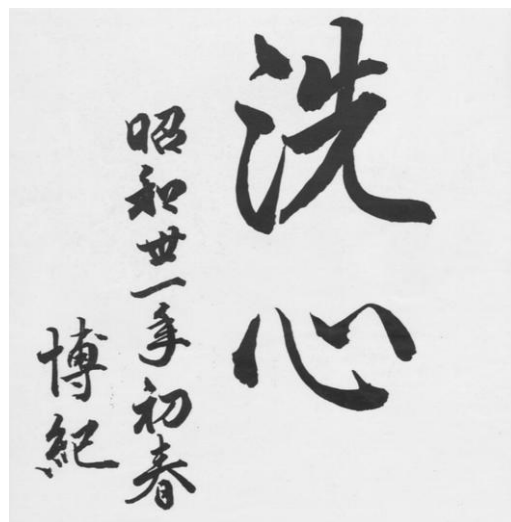 洗心
昭和卅一年初春
博紀